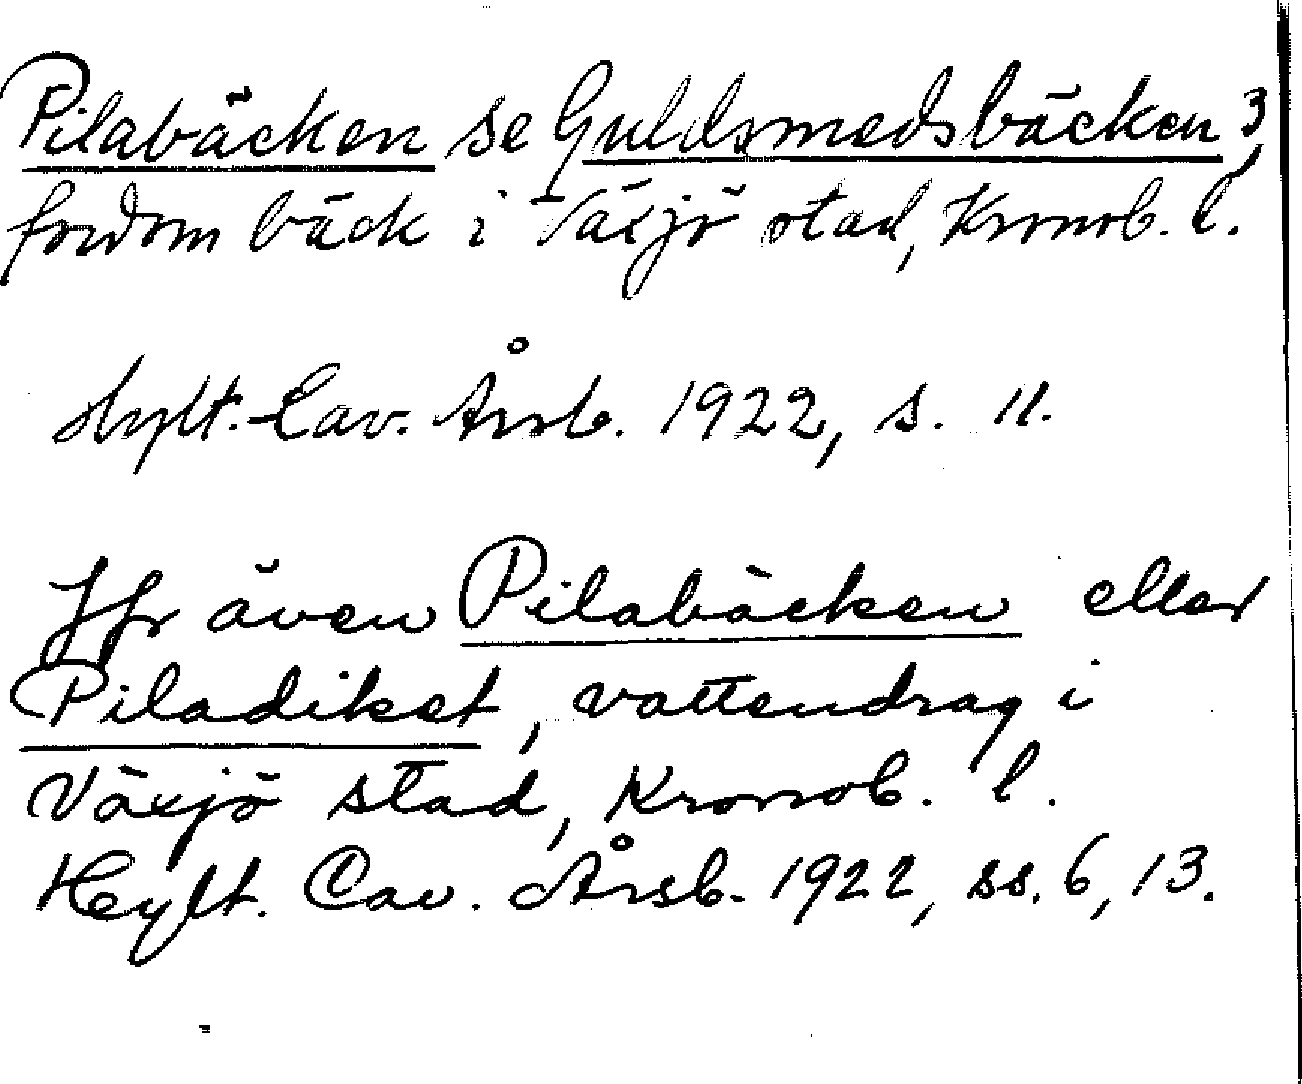 Pilabäcken se Guldsmedsbäcken 3,
fordom bäck i Växjö stad, Kronob. l.
Hylt.-Cav. Årsb. 1922, s. 11.
Jfr även Pilabäcken eller
Piladiket, vattendrag i
Växjö stad, Kronob. l.
Hylt. Cav. Årsb. 1922, ss. 6, 13.